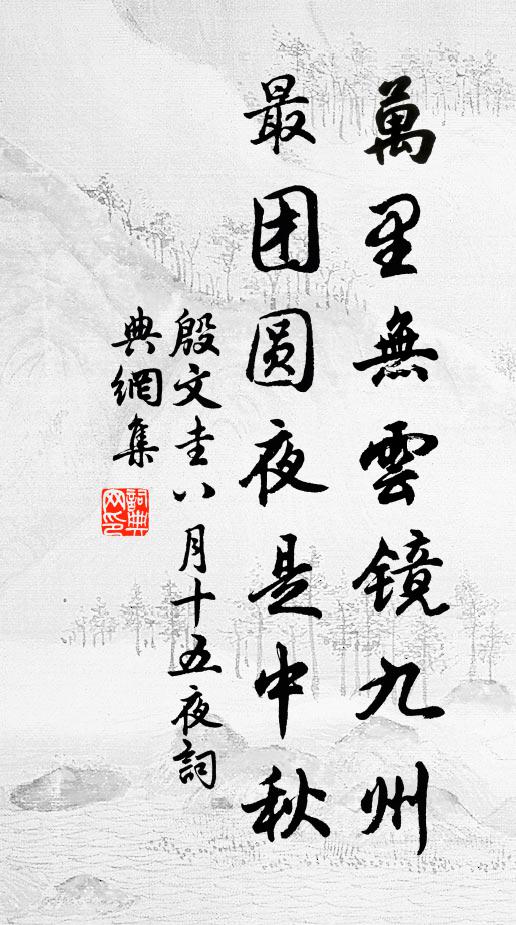 萬里無雲镜九州
最团圆夜是中秋
殷文圭八月十五夜詞
典網集
詞典网印